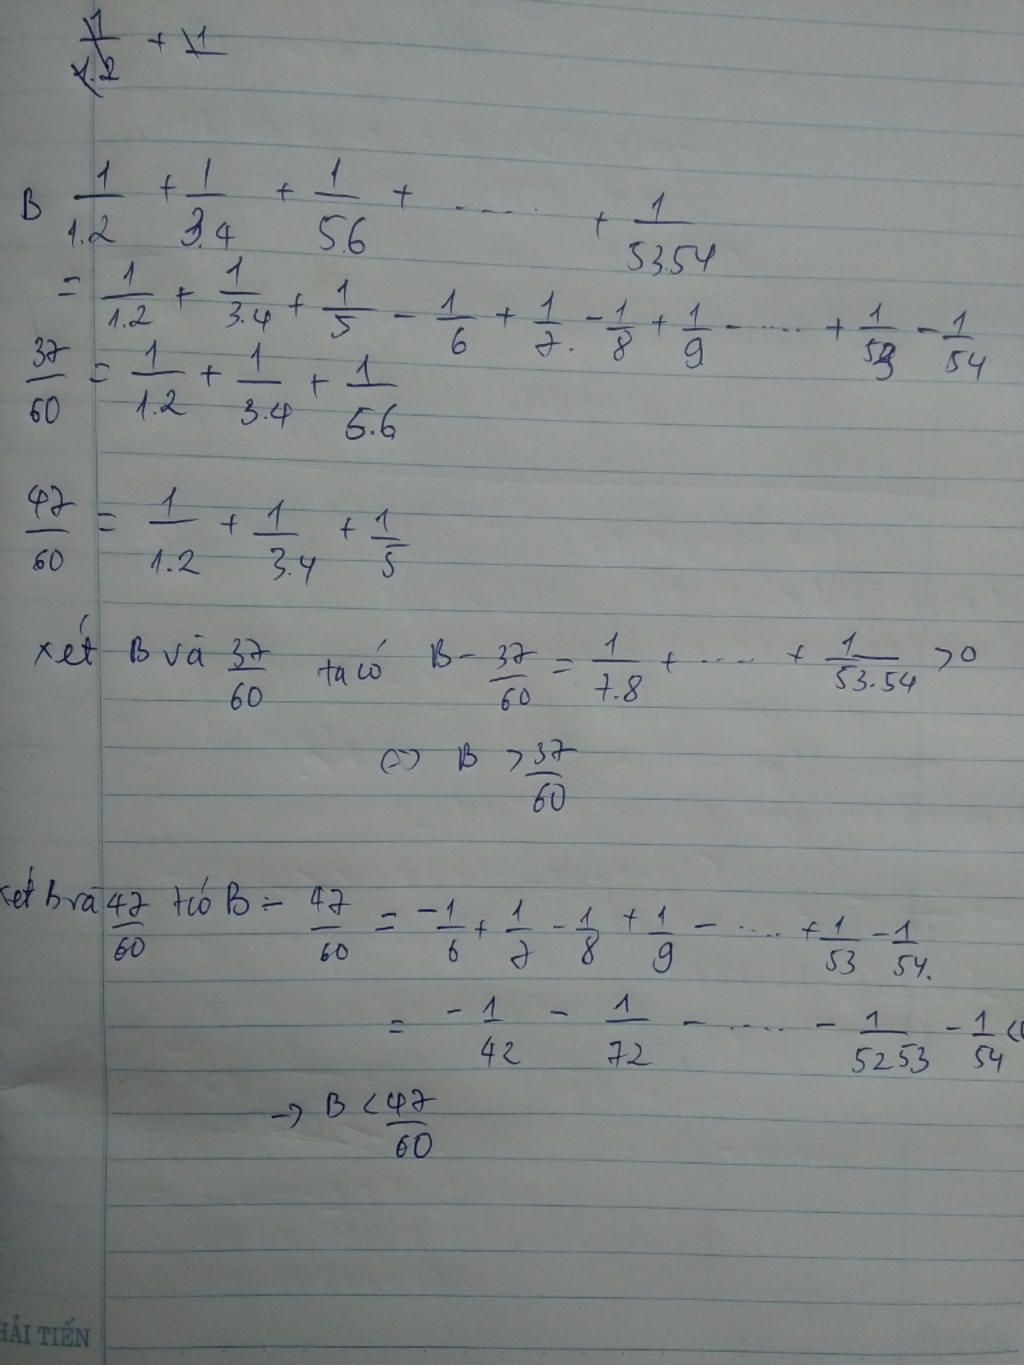 1/1.2 + 1
B 1/1.2 + 1/3.4 + 1/5.6 + ....... + 1/53.54
= 1/1.2 + 1/3.4 + 1/5 - 1/6 + 1/7. - 1/8 + 1/9 - ..... + 1/53 - 1/54
37/60 = 1/1.2 + 1/3.4 + 1/5.6
47/60 = 1/1.2 + 1/3.4 + 1/5
xét B và 37/60 ta có B - 37/60 = 1/7.8 + ..... + 1/53.54 > 0
<=> B > 37/60
xét B và 47/60 tcó B - 47/60 = -1/6 + 1/7 - 1/8 + 1/9 - ..... + 1/53 - 1/54.
= - 1/42 - 1/72 - ..... - 1/52 53 - 1/54 <
-> B < 47/60
HẢI TIẾN